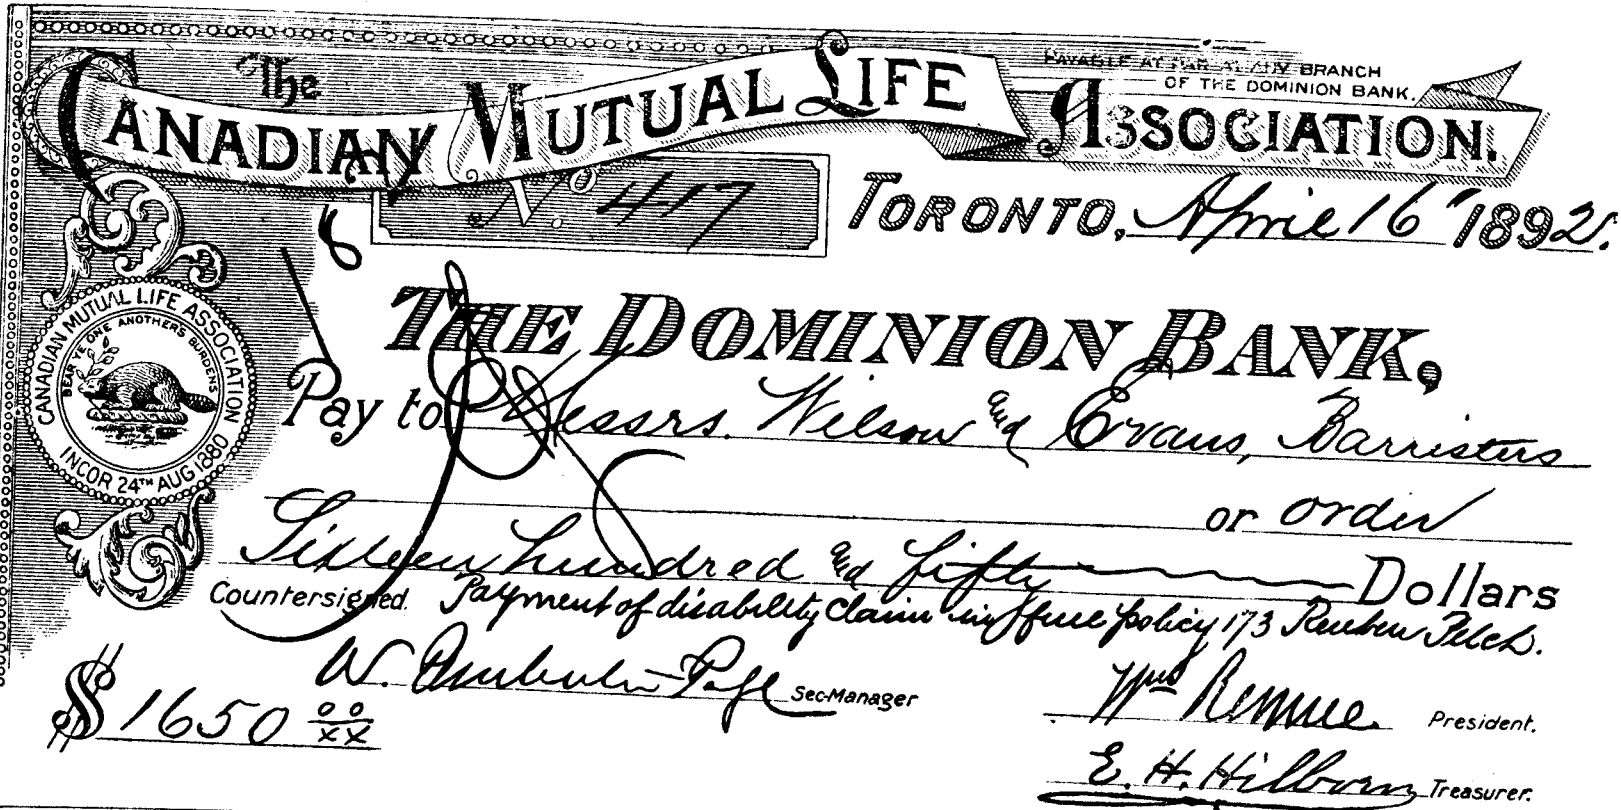 The
CANADIAN MUTUAL LIFE ASSOCIATION.
PAYABLE AT PAR AT ANY BRANCH
OF THE DOMINION BANK.
No. 417
TORONTO, April 16" 1892.
THE DOMINION BANK,
CANADIAN MUTUAL LIFE ASSOCIATION
BEAR YE ONE ANOTHERS BURDENS
INCOR 24TH AUG 1880
Pay to Messrs. Wilson and Evans, Barristers
or order
Sixteen hundred and fifty Dollars
Countersigned. Payment of disability claim in full policy 173 Reuben
W. Pemberton Page Sec-Manager
Wm Rennie President.
$ 1650 00/xx
E. H. Hilborn Treasurer.